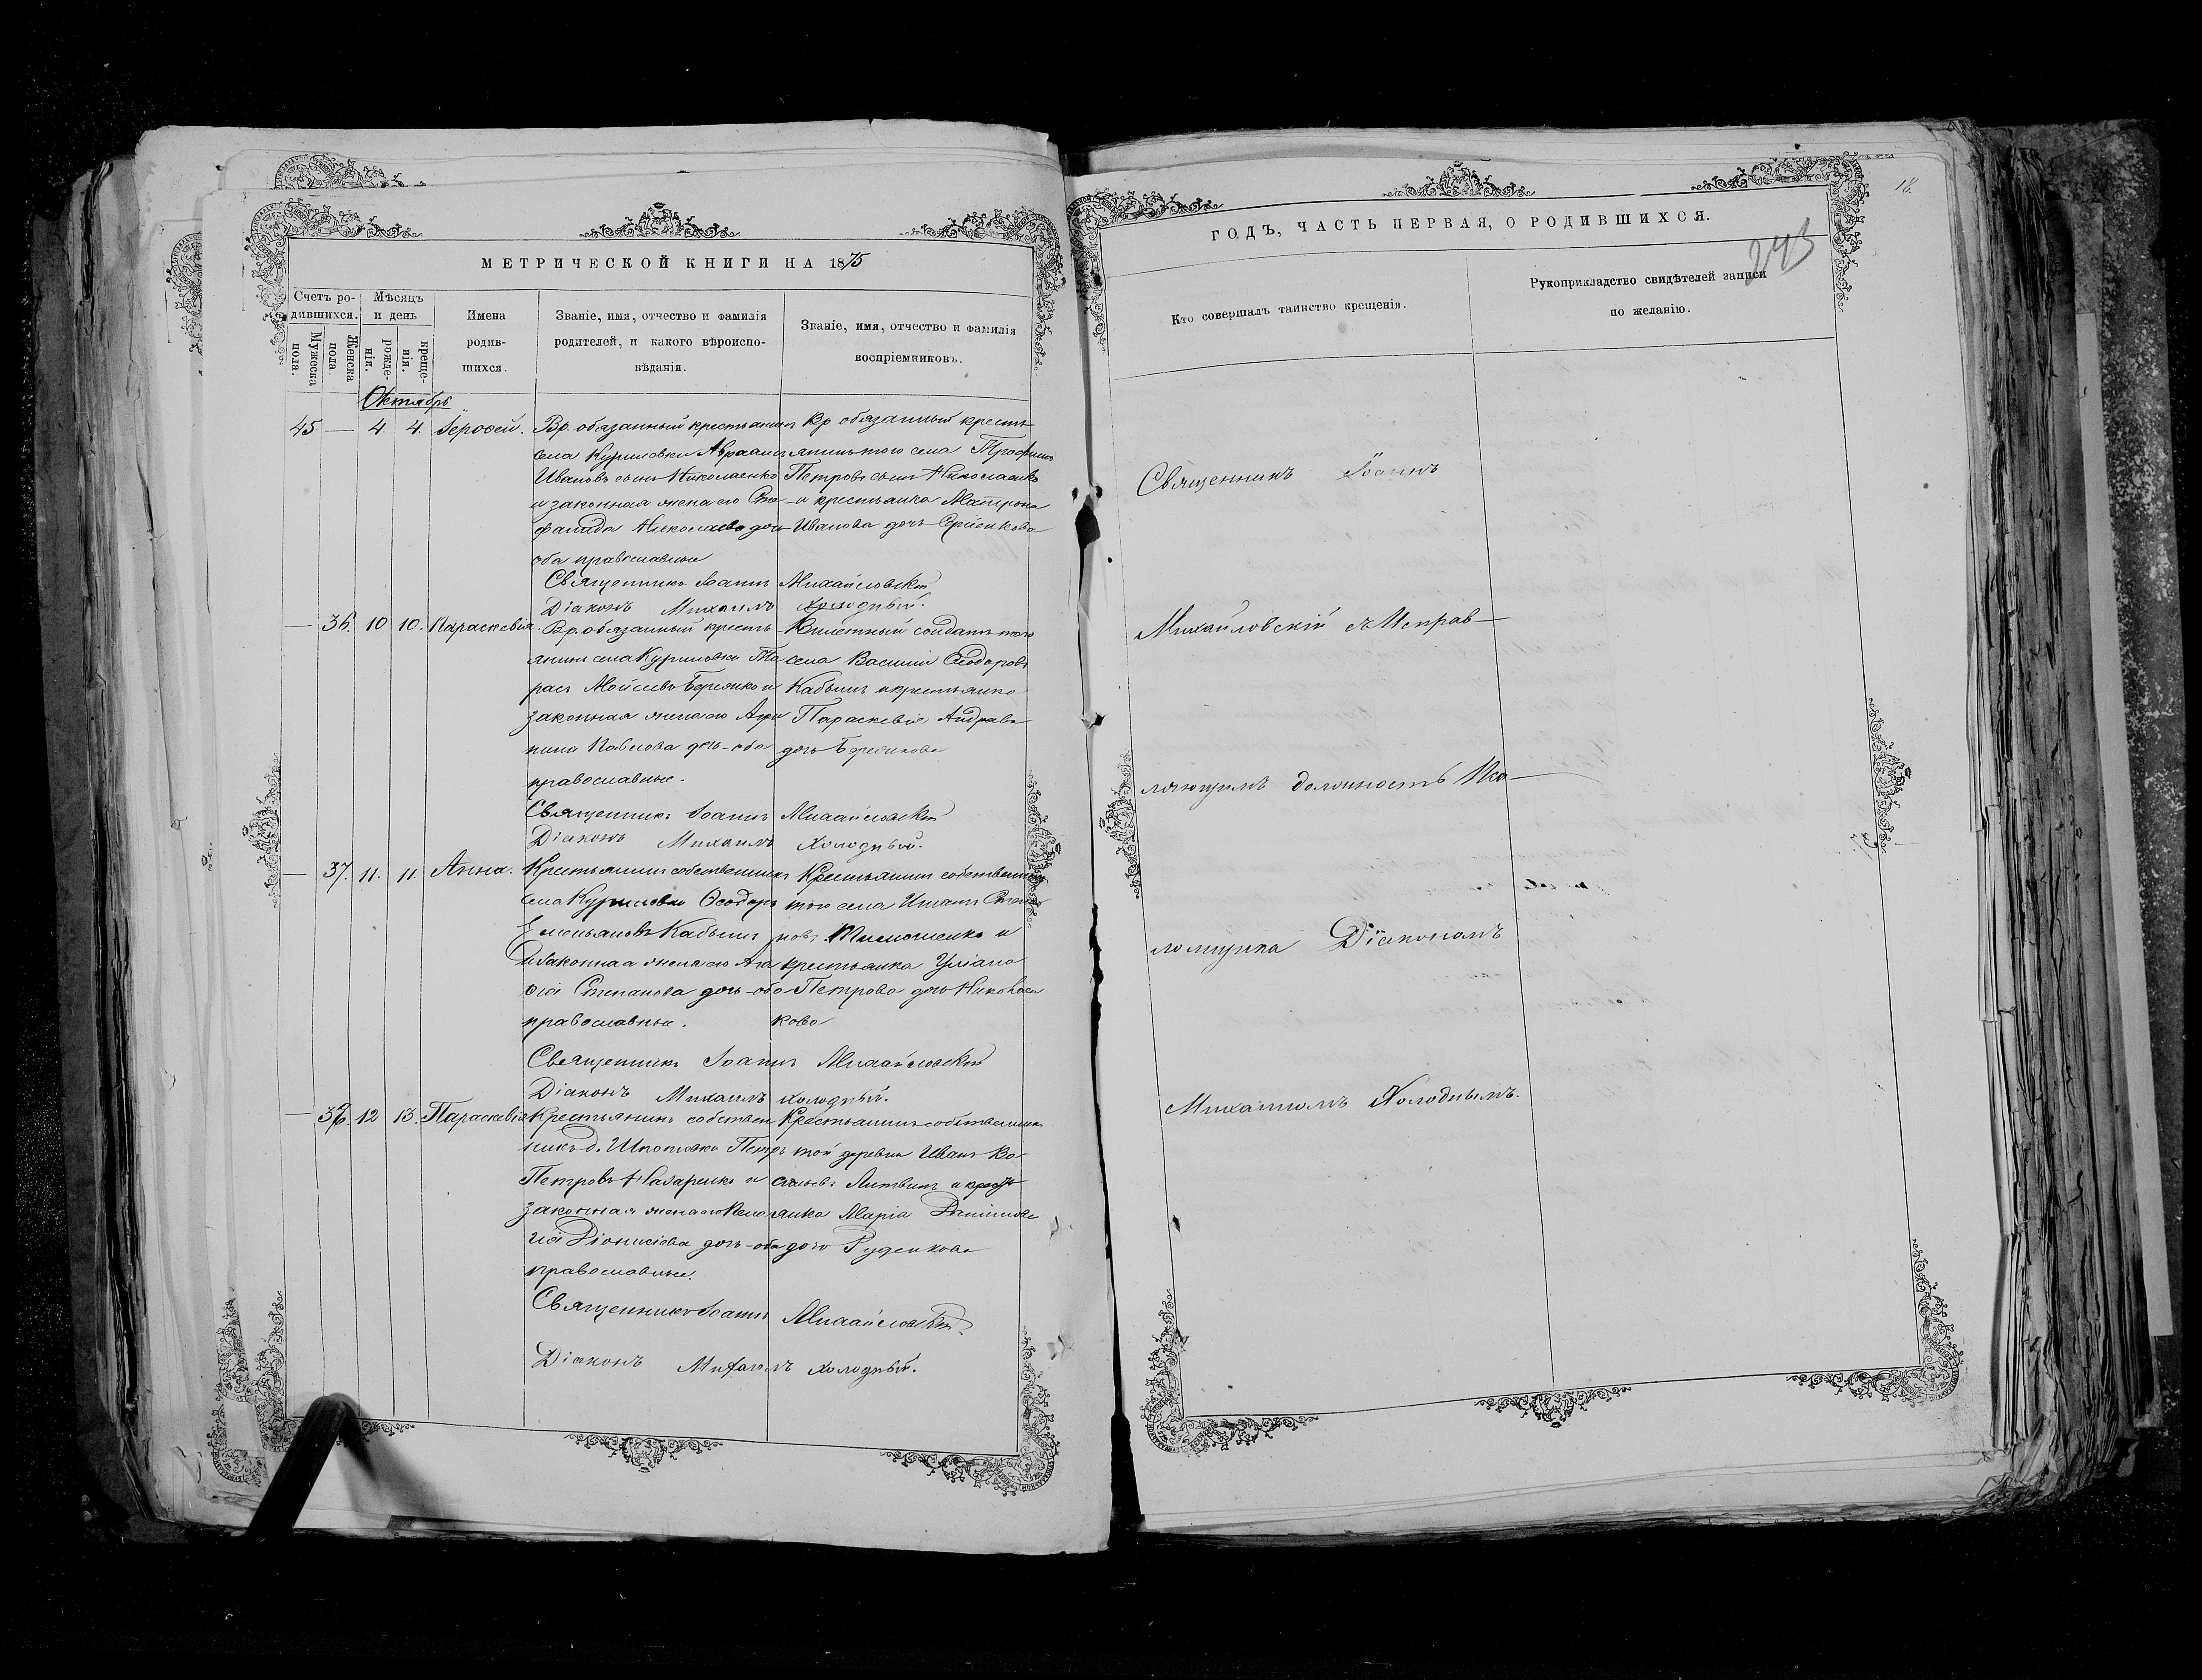 МЕТРИЧЕСКОЙ КНИГИ НА 1875
Счетъ ро-
дившихся.
Мужеска пола.
Женска пола.
Мѣсяцъ
и день
рожде-
нія.
креще-
нія.
Имена
родив-
шихся.
Званіе, имя, отчество и фамилія
родителей, и какого вѣроиспо-
вѣданія.
Званіе, имя, отчество и фамилія
воспріемниковъ.
Октябрь
45 — 4 4 Іероѳей.
Вр. обязанный крестьянинъ
села Куриловки Авраамъ
Ивановъ сынъ Николаенко
и законная жена его Сте-
фанида Николаева дочь
оба православные
Вр обязанный кресть
янинъ того села Трофимъ
Петровъ сынъ Николаенко
и крестьянка Матрона
Иванова дочь
Священникъ Іоаннъ Михайловскій
Діаконъ Михаилъ Холодный.
— 36. 10 10. Параскевія.
Вр. обязанный кресть
янинъ села Куриловки Та
расъ Моисеевъ и
законная жена его Агри
пина Павлова дочь - оба
православные.
Билетный солдатъ того
села Василій Ѳеодоровъ
Кабышъ и крестьянка
Параскевія
дочь
Священникъ Іоаннъ Михайловскій
Діаконъ Михаилъ Холодный.
— 37. 11. 11. Анна.
Крестьянинъ собственникъ
села Куриловки Ѳеодоръ
Емельяновъ Кабышъ
и законная жена его Ага
ѳія Степанова дочь - оба
православные.
Крестьянинъ собственникъ
того села
новъ Тимошенко и
крестьянка Уліана
Петрова дочь Николаен
кова
Священникъ Іоаннъ Михайловскій
Діаконъ Михаилъ Холодный.
— 38. 12 13. Параскевія
Крестьянинъ собствен
никъ д. Петръ
Петровъ Назаренко и
законная жена его Кела
гія Діонисіева дочь - оба
православные.
Крестьянинъ собственникъ
той деревни Иванъ Ва
сильевъ Литвинъ и кресть
янка Марія
дочь Руденкова
Священникъ Іоаннъ Михайловскій.
Діаконъ Михаилъ Холодный.
18.
243
ГОДЪ, ЧАСТЬ ПЕРВАЯ, О РОДИВШИХСЯ.
Кто совершалъ таинство крещенія.
Рукоприкладство свидѣтелей записи
по желанію.
Священникъ Іоаннъ
Михайловскій съ Исправ—
ляющимъ должность Пса—
ломщика Діакономъ
Михаиломъ Холоднымъ.